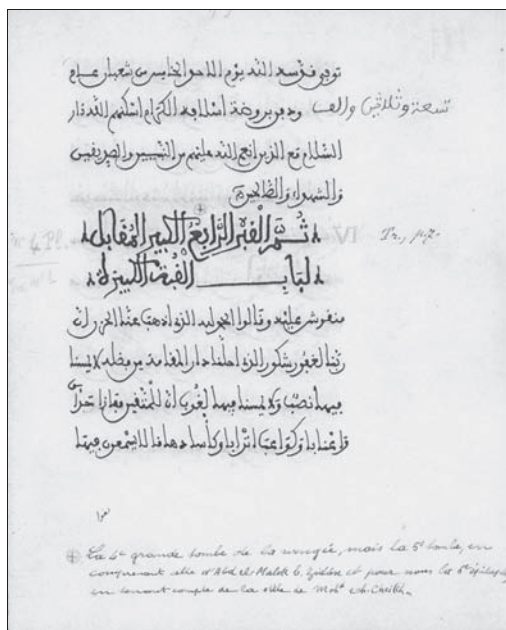 توفي قدسه الله يوم الاحد الخامس من شعبان عام
تسعة وثلاثين والف ودفن بروضة اسلافه الكرام اسكنهم الله دار
السلام مع الذين انعم الله عليهم من النبيين والصديقين
والشهداء والصالحين
ثم القبر الرابع الكبير المقابل
Tr., p. 7.
لباب القبة الكبيرة
منقوش عليه وقالوا الحمد لله الذي اذهب عنا الحزن ان
ربنا لغفور شكور الذي احلنا دار المقامة من فضله لا يمسنا
فيها نصب ولا يمسنا فيها لغوب ان للمتقين مفازا حدائق
واعنابا وكواعب اترابا وكأسا دهاقا لا يسمعون فيها
لغوا
⊕ La 4e grande tombe de la rangée, mais la 5e tombe, en
comprenant celle d'Abd el-Malek b. Zidân et pour nous la 6e épitaphe
en tenant compte de la stèle de Moh. ech-Cheikh.